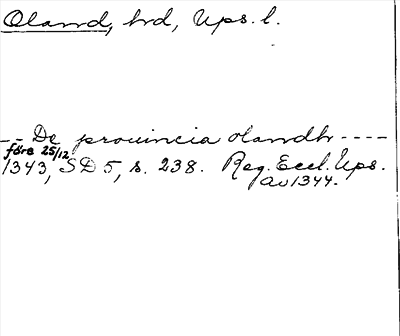 Oland, hd, Ups. l.
-- De prouincia olandh ----
före 25/12
1343, SD 5, s. 238. Reg. Eccl. Ups.
av 1344.